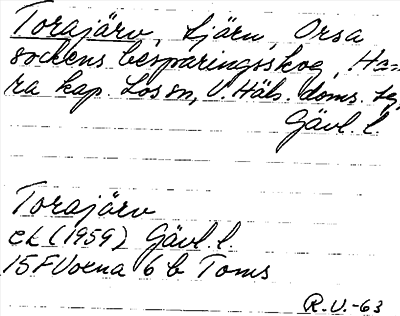 Torajärv, tjärn, Orsa
sockens besparingsskog, Ham=
ra kap. Los sn, V. Häls. doms. sg,
Gävl. l.
Torajärv
ek (1959) Gävl. l.
15F Voxna 6 b Toms
R.V.-63